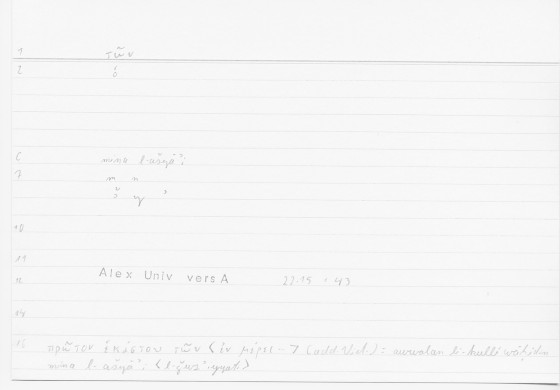 1 τῶν
2 ὁ
6 mina l-ašyāʾi
7
10
11
12 Alex Univ vers A 22.15 , 43
14
15 πρῶτον ἑκάστου τῶν ⟨ἐν μέρει⟩ (add. Vict.) = awwalan li-kulli wāḥidin
mina l-ašyāʾi ⟨l-ǧuzʾiyyati⟩